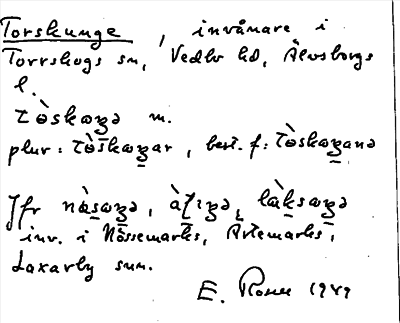 Torskunge, invånare i
Torrskogs sn, Vedbo hd, Älvsborgs
l.
tòskaʒə m.
plur: tòskaʒar, best. f: tòskaʒana
Jfr nàsaʒə, àʈɪʒə, làksaʒə
inv. i Nössemarks, Ärtemarks,
Laxarby snn.
E. Rosell 1949